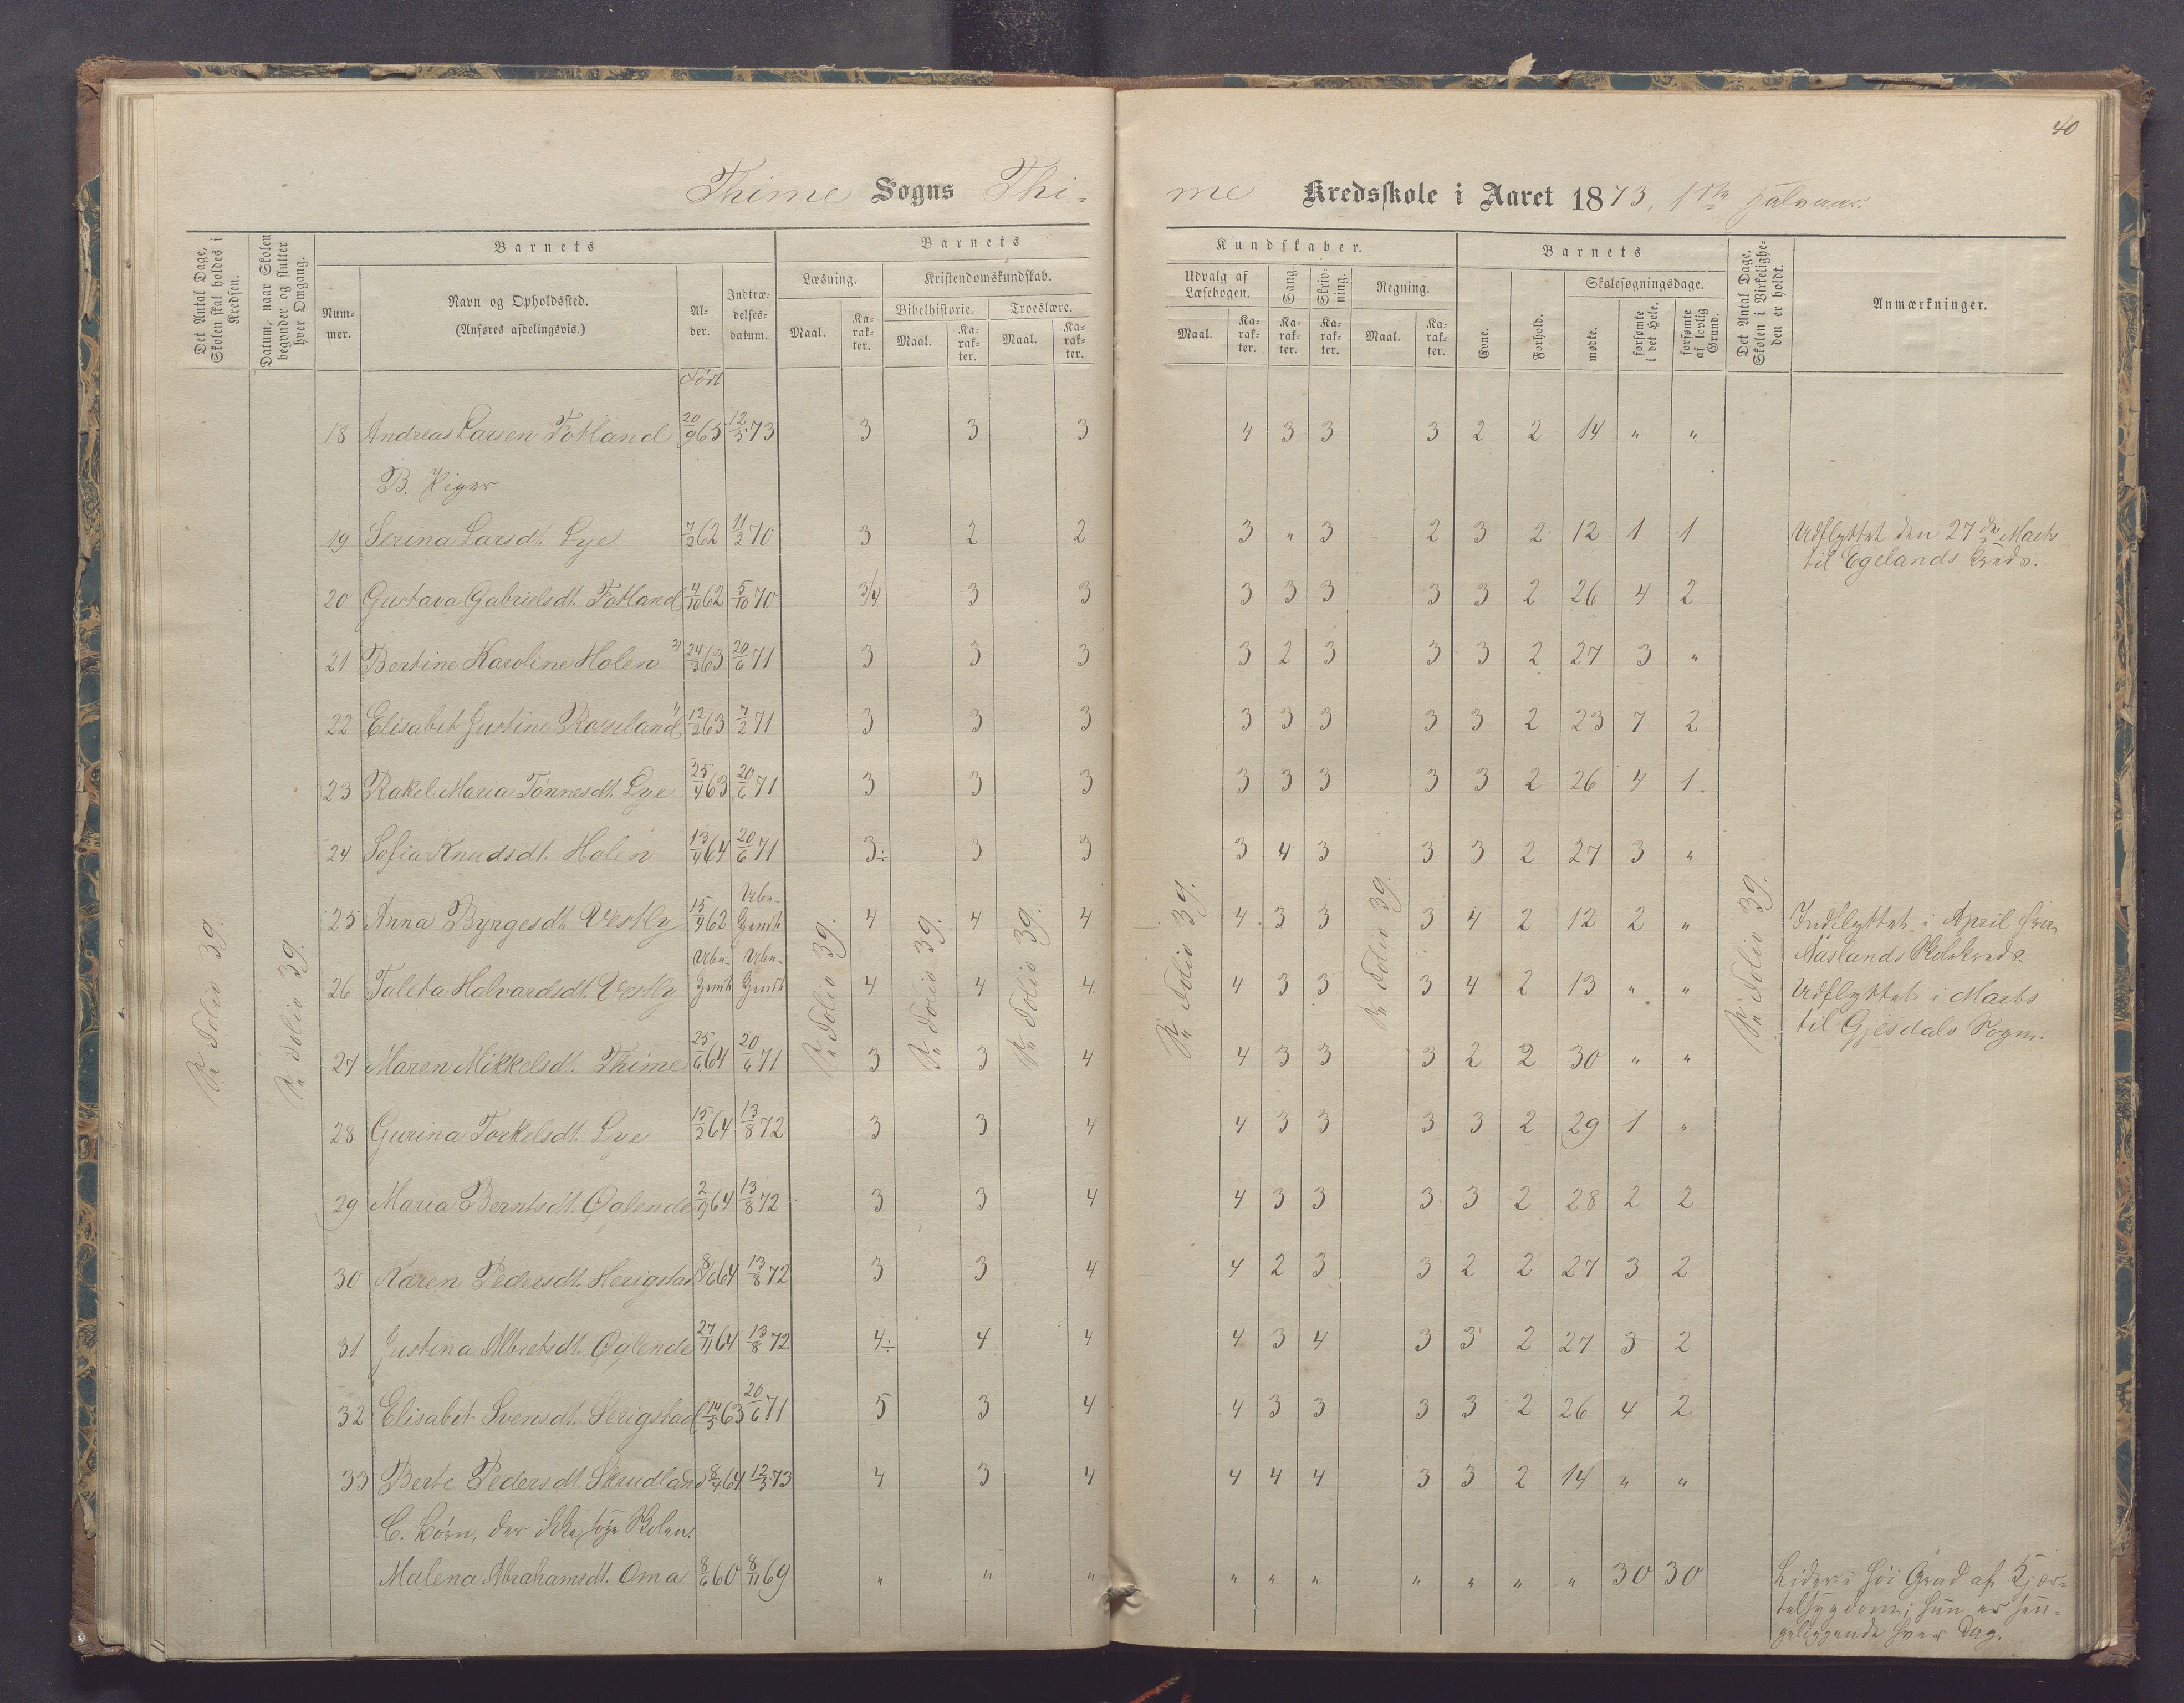 40
Thime Sogns Thi-
me Kredsskole i Aaret 1873, 1ste Halvaar.
Det Antal Dage, Skolen skal holdes i Kredsen.
Datum, naar Skolen begynder og slutter hver Omgang.
Barnets
Barnets
Kundskaber.
Barnets
Det Antal Dage, Skolen i Virkeligheden er holdt.
Anmærkninger.
Nummer.
Navn og Opholdssted.
(Anføres afdelingsvis.)
Alder.
Indtrædelsesdatum.
Læsning.
Kristendomskundskab.
Bibelhistorie.
Troeslære.
Udvalg af Læsebogen.
Sang.
Skrivning.
Regning.
Evne.
Forhold.
Skolesøgningsdage.
mødte.
forsømte i det Hele.
forsømte af lovlig Grund.
Maal. Karakter. Maal. Karakter. Maal. Karakter.
Maal. Karakter. Karakter. Karakter. Maal. Karakter.
Født
18 Andreas Larsen Fotland 20/9 65 12/5 73 3 3 3 4 3 3 3 2 2 14 " "
B. Piger
19 Serina Larsdt. Lye 7/2 62 11/2 70 3 2 2 3 " 3 2 3 2 12 1 1 Udflyttet den 27de Marts
til Egelands Kreds.
20 Gustava Gabrielsdt. Fotland 4/10 62 5/10 70 3/4 3 3 3 3 3 3 3 2 26 4 2
21 Bertine Karoline Holen 2) 24/3 63 20/6 71 3 3 3 3 2 3 3 3 2 27 3 "
22 Elisabet Justine Rosseland 1) 12/2 63 7/2 71 3 3 3 3 3 3 3 3 2 23 7 2
23 Rakel Maria Tønnesdt. Lye 25/4 63 20/6 71 3 3 3 3 3 3 3 3 2 26 4 1
24 Sofia Knudsdt. Holen 13/4 64 20/6 71 3÷ 3 3 3 4 3 3 3 2 27 3 "
25 Anna Byrgesdt. Vestly 15/4 62 Ube-
kjendt 4 4 4 4 3 3 3 4 2 12 2 " Indflyttet i April fra
Aaslands Skolekreds.
26 Taleta Halvardsdt. Vestly Ube-
kjendt Ube-
kjendt 4 4 4 4 3 3 3 4 2 13 " " Udflyttet i Marts
til Gjesdals Sogn.
27 Maren Mikkelsdt. Thime 25/6 64 20/6 71 3 3 4 4 3 3 3 2 2 30 " "
28 Gurina Torkelsdt. Lye 15/2 64 13/8 72 3 3 4 4 3 3 3 3 2 29 1 "
29 Maria Berntsdt. Øglende 2/9 64 13/8 72 3 3 4 4 3 3 3 3 2 28 2 2
30 Karen Pedersdt. Herigstad 8/6 64 13/8 72 3 3 4 4 2 3 3 2 2 27 3 2
31 Justina Albretsdt. Øglende 27/11 64 13/8 72 4÷ 4 4 4 3 4 3 3 2 27 3 2
32 Elisabet Svensdt. Serigstad 14/5 63 20/6 71 5 3 4 4 3 3 3 3 2 26 4 2
33 Berte Pedersdt. Skrudland 8/4 64 12/5 73 4 3 4 4 4 4 3 3 2 14 " "
C. Børn, der ikke søge Skolen.
Malena Abrahamsdt. Oma 8/6 60 8/11 69 " " " " " " " " " " 30 30 Lider i høi Grad af Kjer-
telsygdom; hun er sen-
geliggende hver Dag.
Se Folio 39.
Se Folio 39.
Se Folio 39.
Se Folio 39.
Se Folio 39.
Se Folio 39.
Se Folio 39.
Se Folio 39.